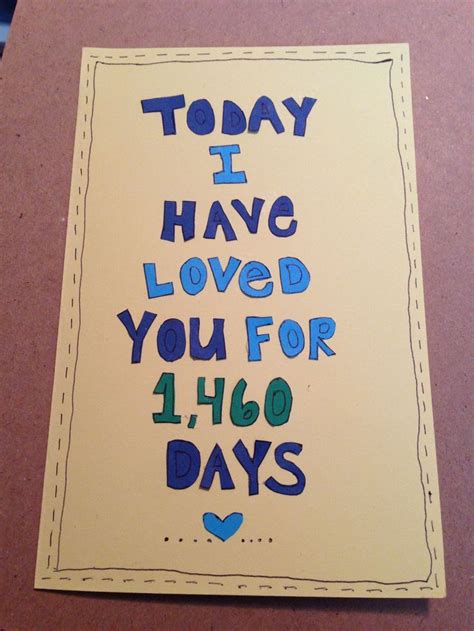 TODAY
I
HAVE
LOVeD
YOU FOR
1,460
DAYS